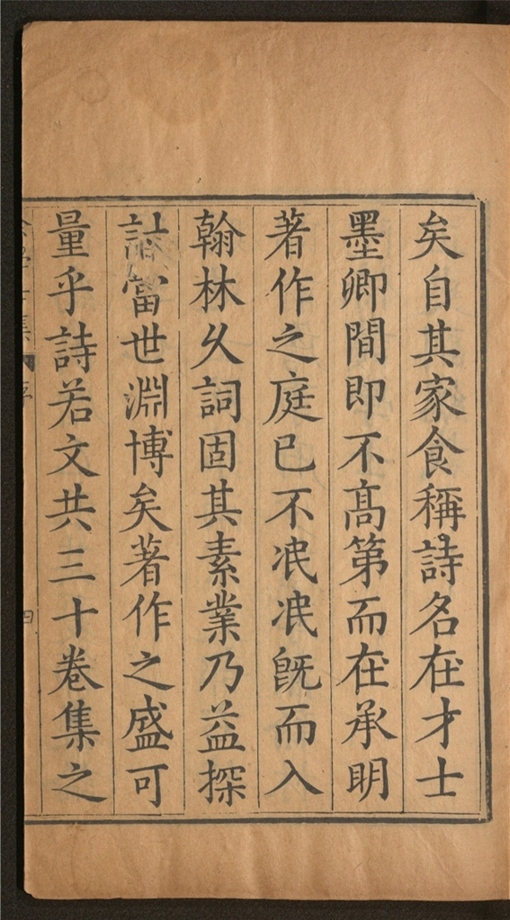 矣自其家食稱詩名在才士
墨卿間即不髙第而在承明
著作之庭已不泯泯旣而入
翰林久詞固其素業乃益探
討當世淵博矣著作之盛可
量乎詩若文共三十卷集之
序
四